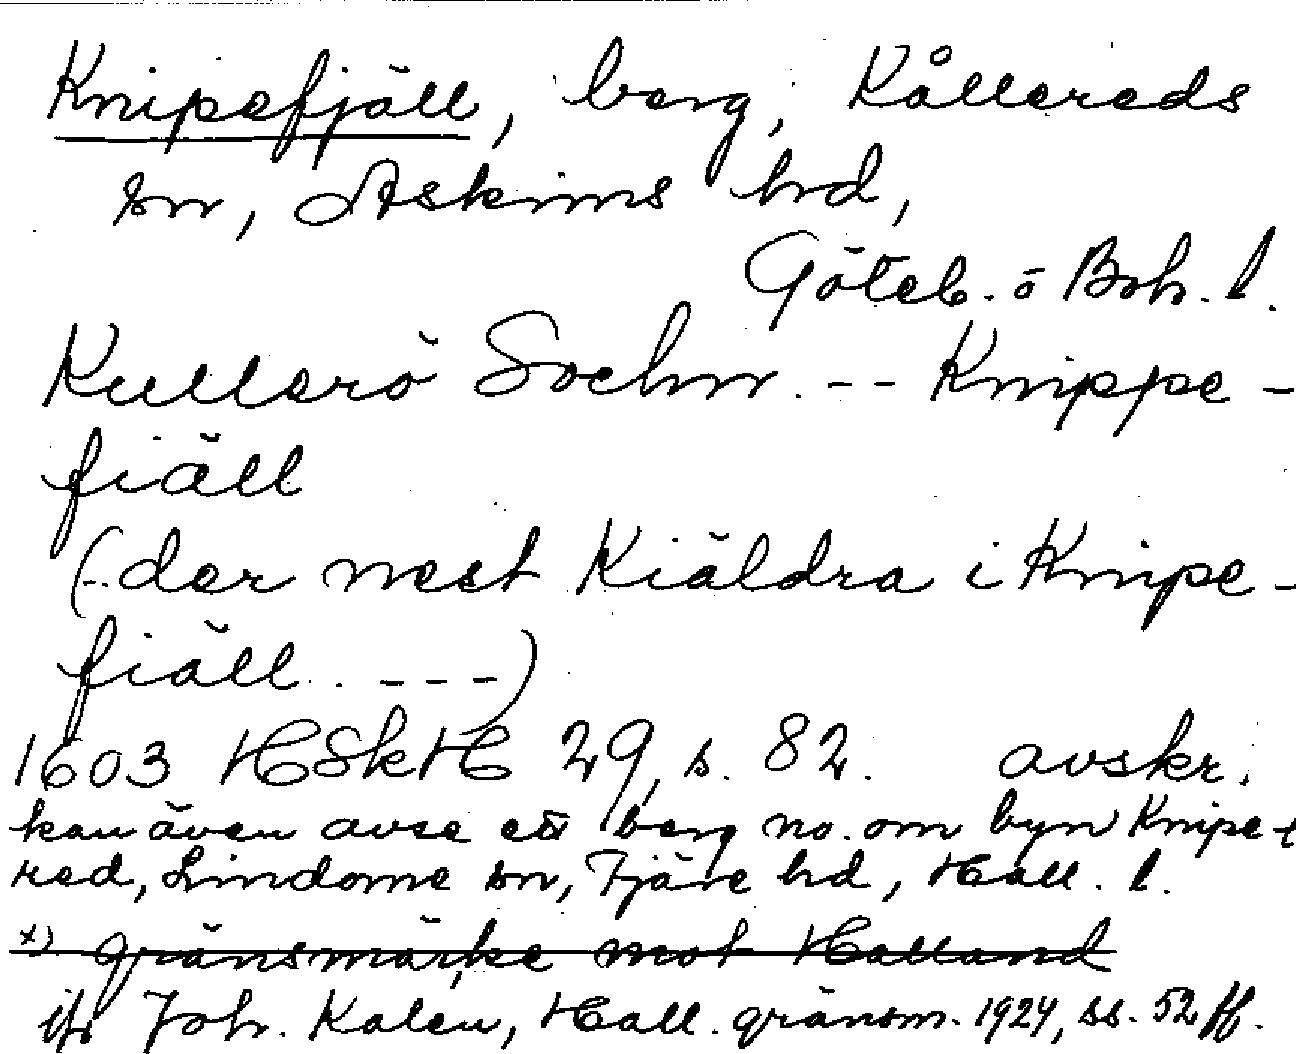 Knipefjäll, berg, Kållereds
sn, Askims hd,
Göteb. o Boh. l.
Kullerö Sochn. -- Knippe-
fiäll
(- der nest Kiäldra i Knipe-
fiäll. ---)
1603 HSkH 29, s. 82. avskr.
kan även avse ett berg no. om byn Knipe-
red, Lindome sn, Fjäre hd, Hall. l.
x) gränsmärke mot Halland
jfr Joh. Kalén, Hall. gränsm. 1924, ss. 52 ff.